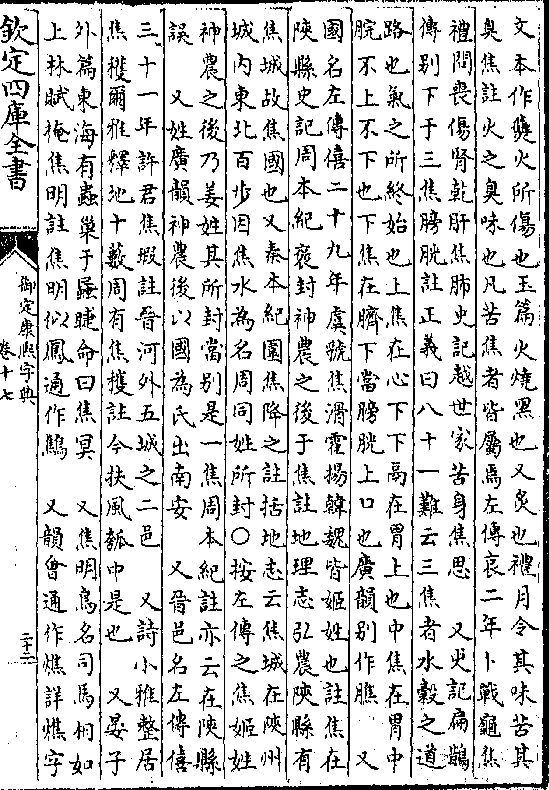 文本作𤓪火所傷也玉篇火燒黑也又炙也禮月令其味苦其
臭焦註火之臭味也凡苦焦者皆屬焉左傳哀二年卜戰龜焦
禮問喪傷腎乾肝焦肺史記越世家苦身焦思　又史記扁鵲
傳別下于三焦膀胱註正義曰八十一難云三焦者水穀之道
路也氣之所終始也上焦在心下下鬲在胃上也中焦在胃中
脘不上不下也下焦在臍下當膀胱上口也廣韻別作膲　又
國名左傳僖二十九年虞虢焦滑霍揚韓魏皆姬姓也註焦在
陝縣史記周本紀褒封神農之後于焦註地理志弘農陝縣有
焦城故焦國也又秦本紀圍焦降之註括地志云焦城在陝州
城内東北百步因焦水為名周同姓所封○按左傳之焦姬姓
神農之後乃姜姓其所封當别是一焦周本紀註亦云在陝縣
誤　又姓廣韻神農後以國為氏出南安　又晉邑名左傳僖
三十一年許君焦瑕註晉河外五城之二邑　又詩小雅整居
焦穫爾雅釋地十藪周有焦穫註今扶風瓠中是也　又晏子
外篇東海有蟲巢于䘉睫命曰焦冥　又焦明鳥名司馬相如
上林賦掩焦明註焦明似鳳通作鷦　又韻會通作憔詳憔字
欽定四庫全書
御定康熙字典
卷十七
二十二